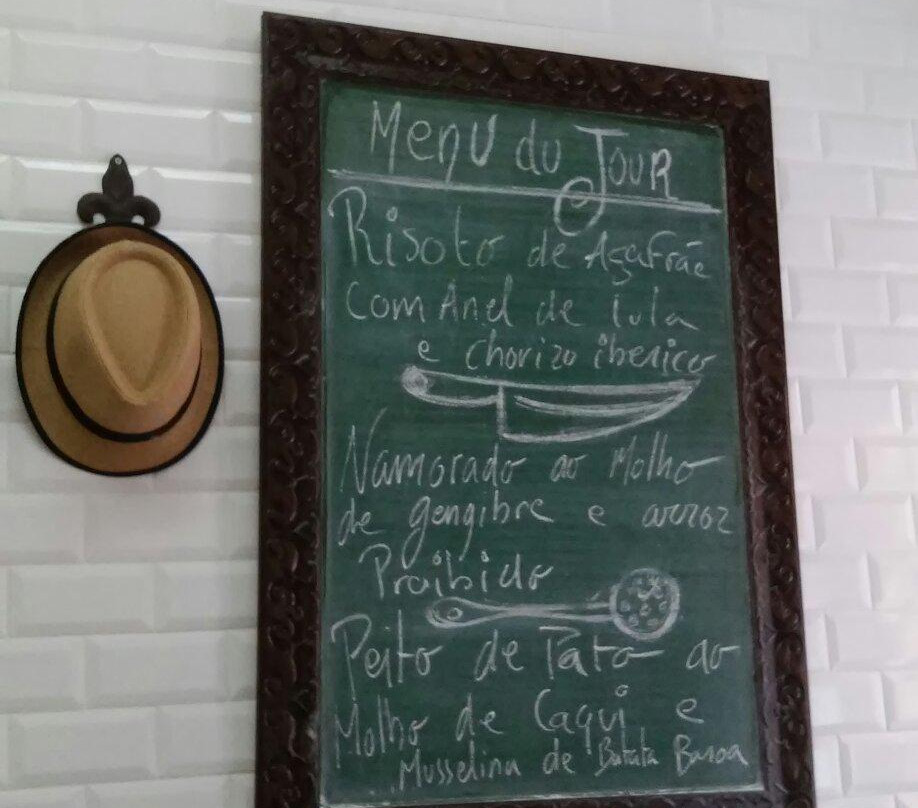 Menu du Jour
Risoto de Açafrão
com Anel de lula
e chorizo iberico
Namorado ao Molho
de gengibre e arroz
Proibido
Peito de Pato ao
Molho de Caqui e
Musselina de Batata Baroa